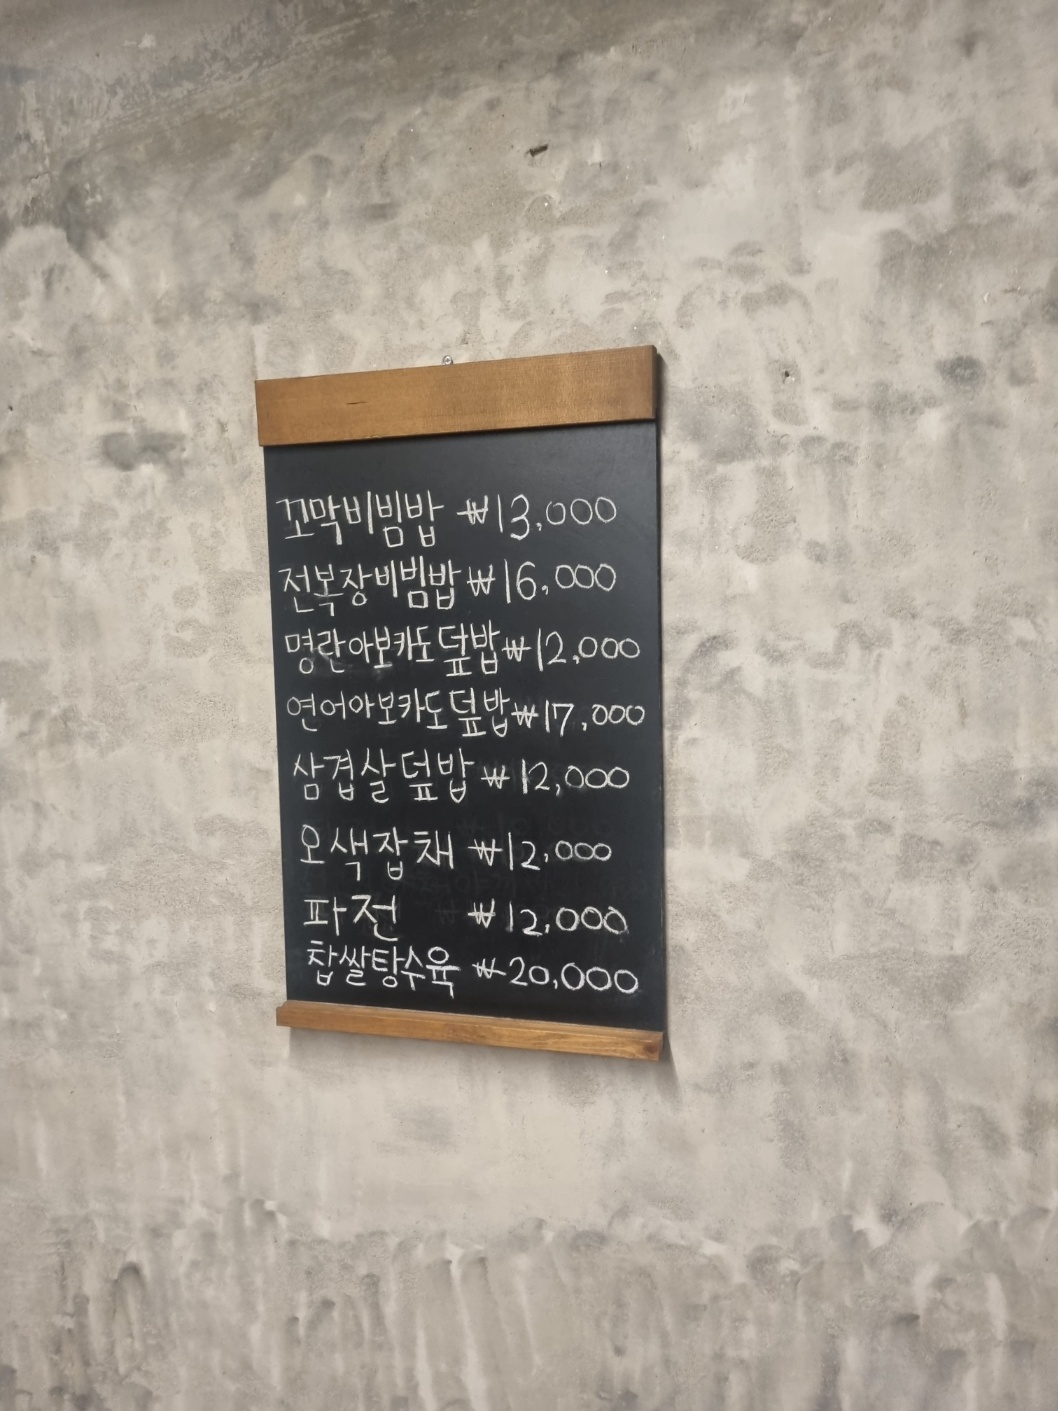 꼬막비빔밥 ₩13,000
전복장비빔밥 ₩16,000
명란아보카도덮밥 ₩12,000
연어아보카도덮밥 ₩17,000
삼겹살덮밥 ₩12,000
오색잡채 ₩12,000
파전 ₩12,000
찹쌀탕수육 ₩20,000